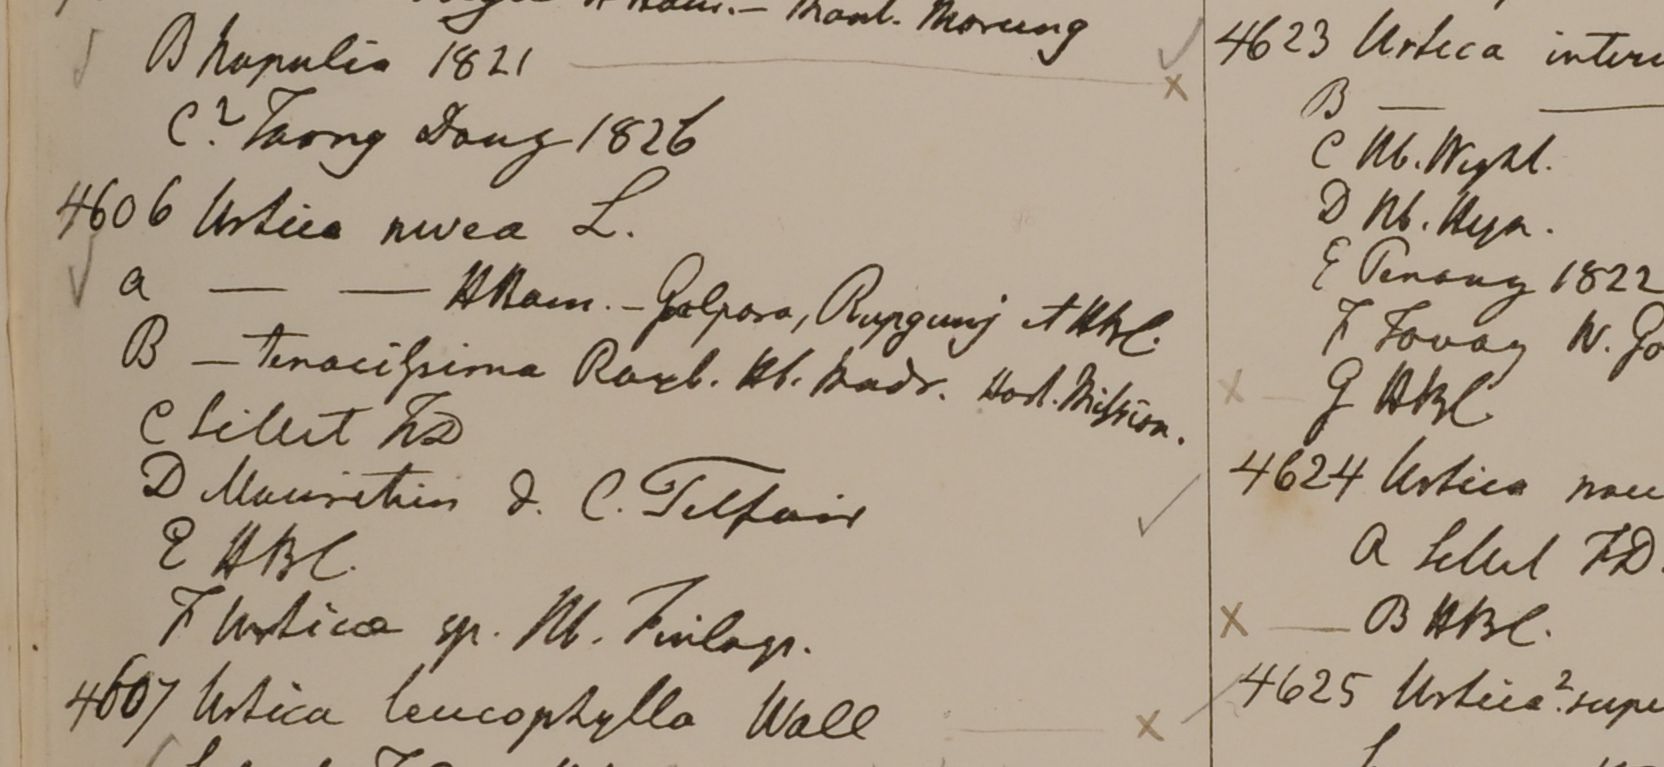 HHam. – Mont. Morung
B Napalia 1821
C? Taong Dong 1826
4606 Urtica nivea L.
a — — HHam. – Golpara, Rupgunj et HBC.
B — tenacissima Roxb. Hb. Madr. Hort. Mission.
C Sillet FD
D Mauritius d. C. Telfair
E HBC.
F Urtica sp. Hb. Finlays.
4607 Urtica leucophylla Wall
4623 Urtica inter
B —
C Hb. Wight.
D Hb. Heyn.
E Penang 1822
F Tavoy W. Go
G HBC
4624 Urtica
A Sillet FD.
B HBC.
4625 Urtica?